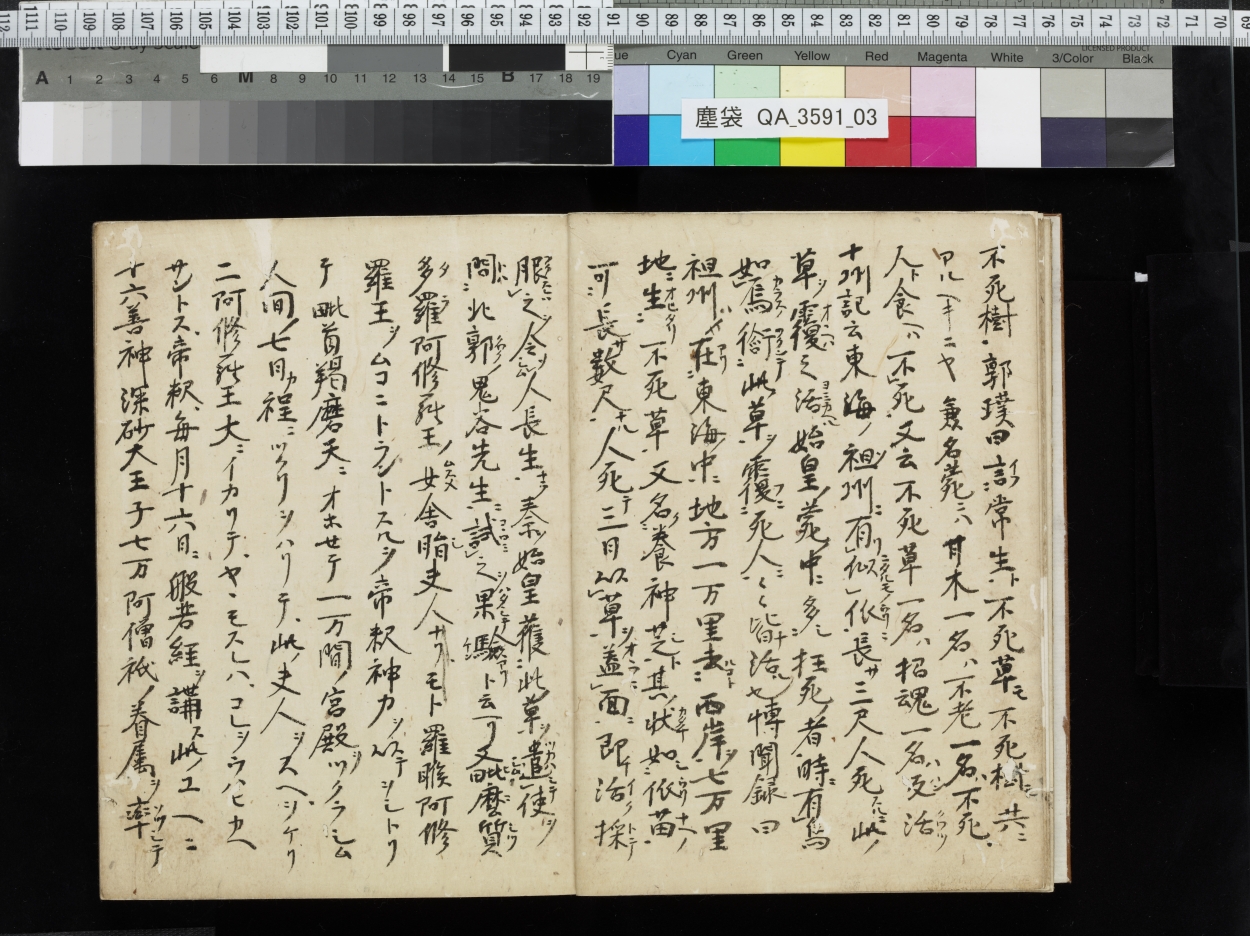 塵袋 QA_3591_03
Cyan Green Yellow Red Magenta White 3/Color Black
LICENSED PRODUCT
A 1 2 3 4 5 6 M 8 9 10 11 12 13 14 15 B 17 18 19
不死樹郭璞曰言常生不死草モ不死樹共ニ
名苑ニハ甘木一名ハ不老一名ハ不死
人食ヘハ不死又云不死草一名ハ招魂一名ハ反活
十州記云東海ノ祖州ニ有似依長サ三尺人死此ノ
草ヲ覆之活始皇ノ苑中ニ多シ枉死者時ニ有烏
如烏銜此草ヲ覆死人ニ皆活也博聞録曰
祖州ハ在東海中ニ地方一万里去西岸ヲ七万里
地ニ生不死草又名養神芝其状如依苗
可長数尺人死テ三日以草ヲ蓋面ニ即活採
服之令人長生秦ノ始皇獲此草ヲ遣使ヲ
問北郭鬼谷先生ニ試之果驗ト云リ又毗摩質
多羅阿修羅王ノ女舎脂夫人ヲモト羅睺阿修
羅王ヲムコニトラントスルヲ帝釈神力ヲ以テ
テ毗首羯磨天ニオホセテ一万間ノ宮殿ヲツクラシム
人間ノ七日カ程ニツクリヲハリテ此ノ夫人ヲスヘ
二阿修羅王大ニイカリテ
サントス帝釈毎月十六日ニ般若経ヲ講ス此ノユヘニ
十六善神深砂大王子七万阿僧祇ノ眷属ヲ率